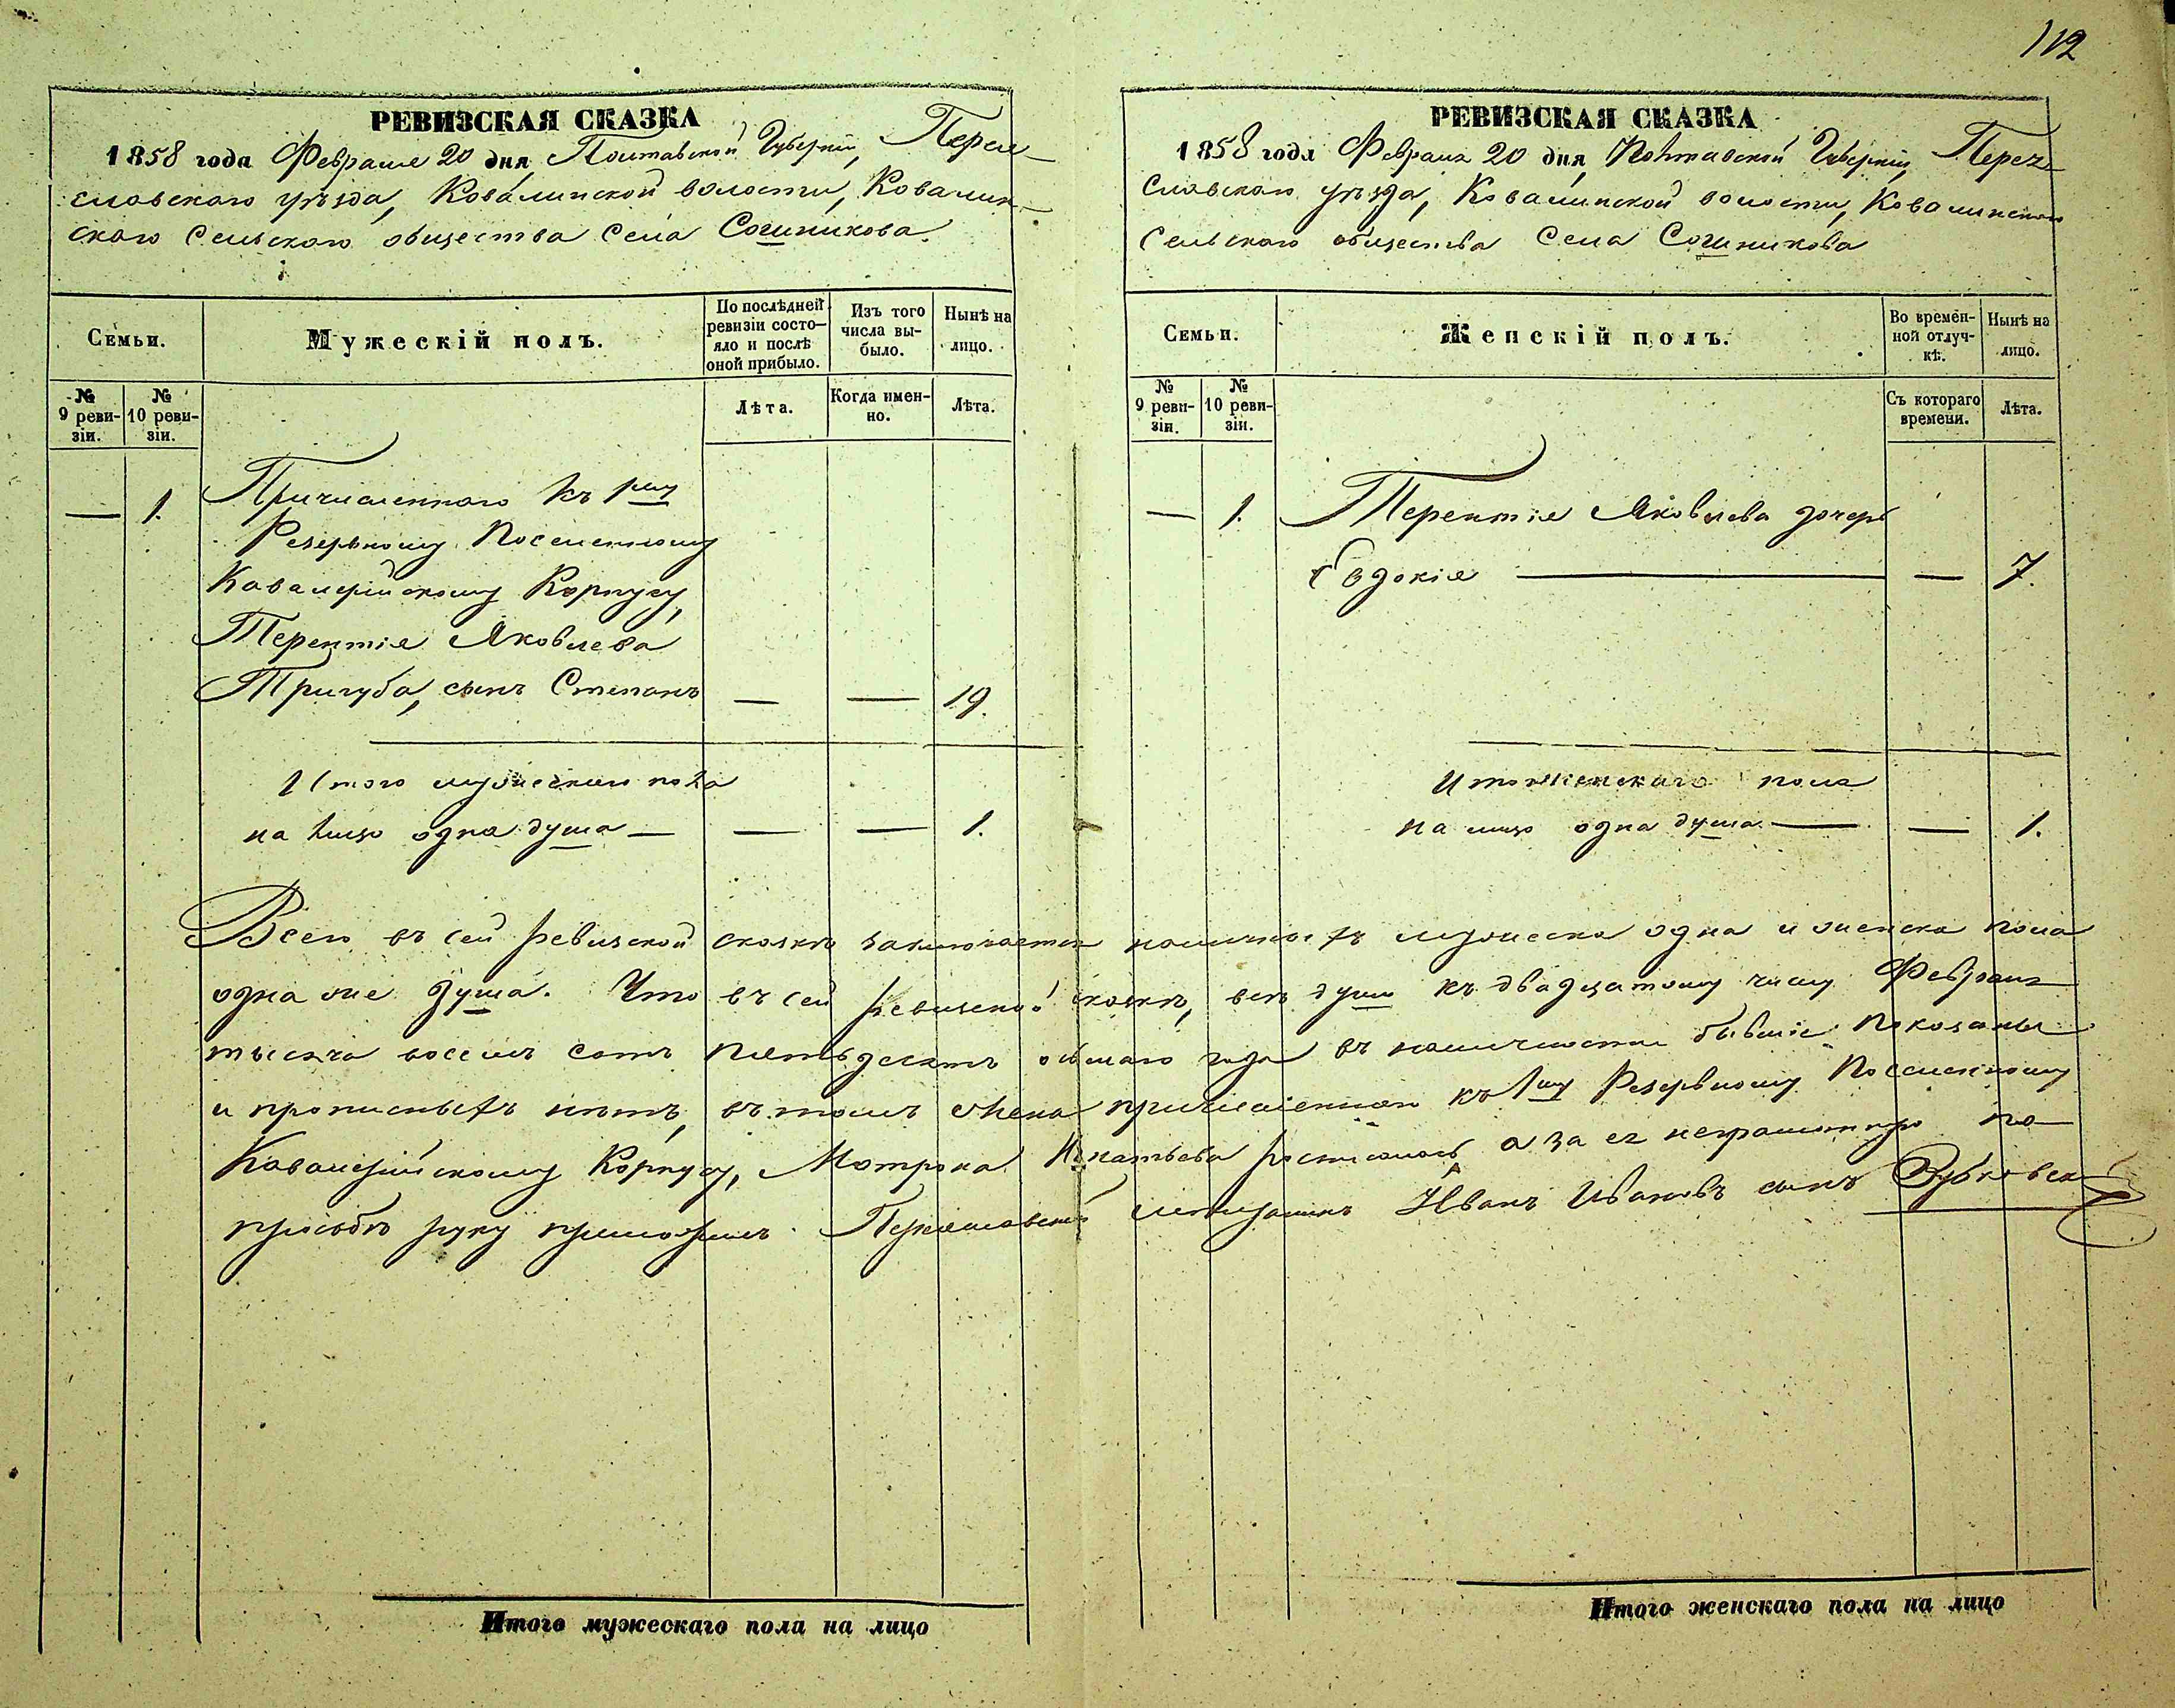 112
РЕВИЗСКАЯ СКАЗКА
1858 года Февраля 20 дня, Полтавской Губерніи, Перея-
славскаго уѣзда, Ковалинской волости, Ковалин-
скаго Сельскаго общества Села Сошникова.
Семьи.
Мужескій полъ.
По послѣдней ревизіи состо-яло и послѣ оной прибыло.
Изъ того числа вы-было.
Нынѣ на лицо.
№ 9 реви-зіи.
№ 10 реви-зіи.
Лѣта.
Когда имен-но.
Лѣта.
— 1. Причисленнаго къ 1му
Резервному Поселенному
Кавалерійскому Корпусу,
Терентія Яковлева
Тригуба, сынъ Степанъ — — 19.
Итого мужескаго пола
на лицо одна душа — — — 1.
РЕВИЗСКАЯ СКАЗКА
1858 года Февраля 20 дня, Полтавской Губерніи, Перея-
славскаго уѣзда, Ковалинской волости, Ковалинскаго
Сельскаго общества Села Сошникова
Семьи.
Женскій полъ.
Во времен-ной отлуч-кѣ.
Нынѣ на лицо.
№ 9 реви-зіи.
№ 10 реви-зіи.
Съ котораго времени.
Лѣта.
— 1. Терентія Яковлева дочерь
Евдокія — — 7.
Итого женскаго пола
на лицо одна душа — — 1.
Всего въ сей ревизской сказкѣ заключается мужеска одна и женска пола
одна же душа. Что въ сей ревизской сказкѣ, всѣ души къ двадцатому числу Февраля
тысяча восемь сотъ пятьдесятъ осьмаго года въ наличности бывшіе показаны
и прописныхъ нѣтъ, въ томъ жена причисленнаго къ 1му Резервному Поселенному
Кавалерійскому Корпусу, Мотрона Игнатьева росписалась а за ея неграмотную по
прозьбѣ руку приложилъ Переяславскій мещанинъ Иванъ Ивановъ сынъ
Итого мужескаго пола на лицо
Итого женскаго пола на лицо